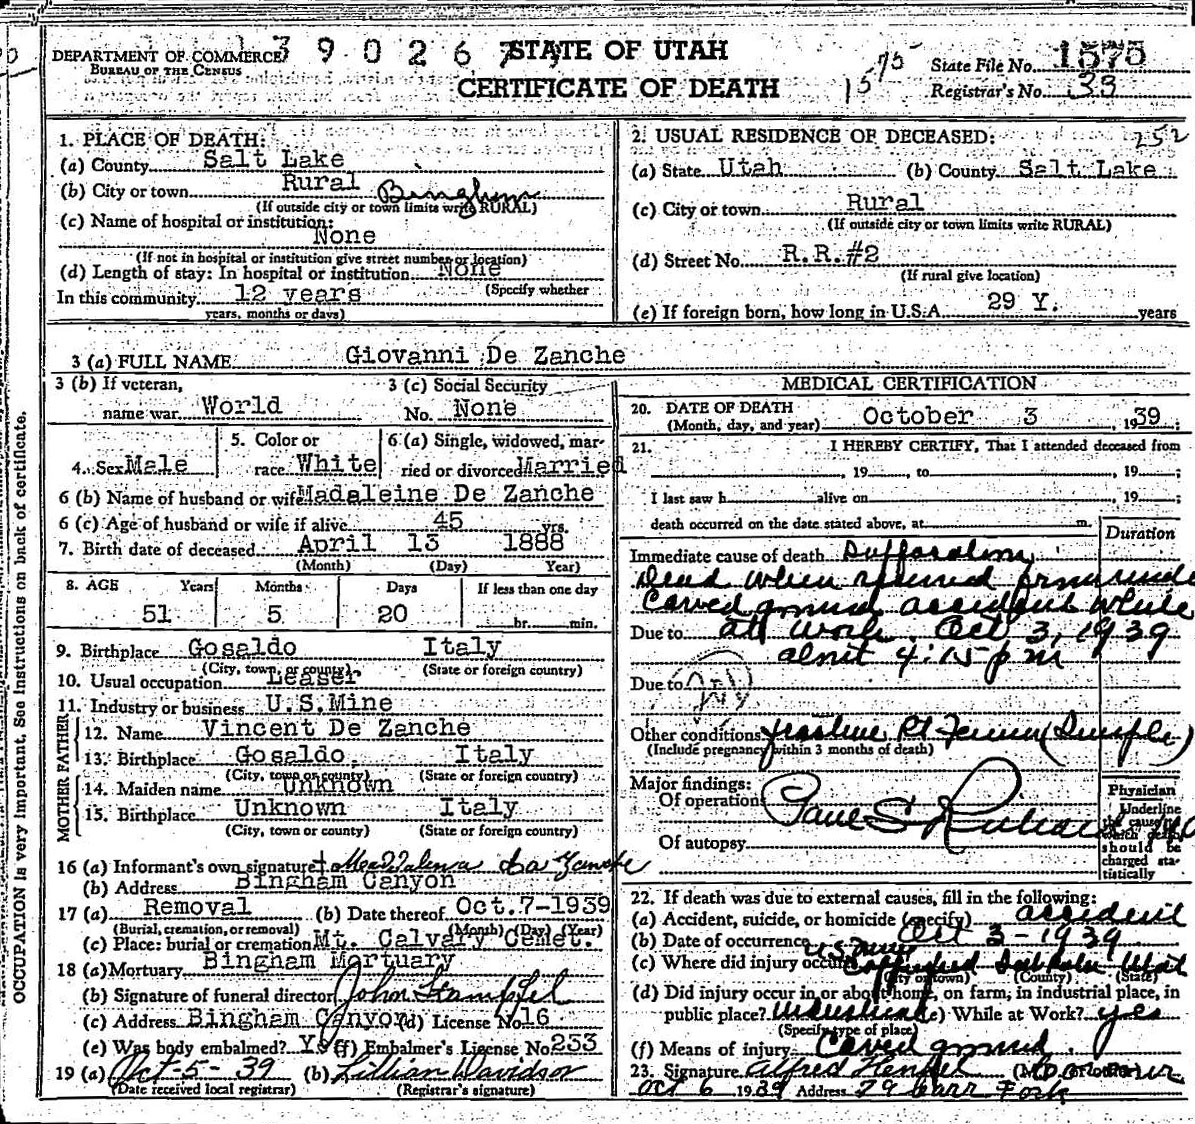 DEPARTMENT OF COMMERCE
BUREAU OF THE CENSUS
STATE OF UTAH
CERTIFICATE OF DEATH
1575
State File No. 1575
Registrar's No. 33
1. PLACE OF DEATH:
(a) County Salt Lake
(b) City or town Rural Bingham
(If outside city or town limits write RURAL)
(c) Name of hospital or institution:
None
(If not in hospital or institution give street number or location)
(d) Length of stay: In hospital or institution None
(Specify whether
In this community 12 years
years, months or days)
2. USUAL RESIDENCE OF DECEASED: 252
(a) State Utah (b) County Salt Lake
(c) City or town Rural
(If outside city or town limits write RURAL)
(d) Street No. R.R.#2
(If rural give location)
(e) If foreign born, how long in U.S.A. 29 Y. years
3 (a) FULL NAME Giovanni De Zanche
3 (b) If veteran,
name war World
3 (c) Social Security
No. None
4. Sex Male
5. Color or
race White
6 (a) Single, widowed, mar-
ried or divorced Married
6 (b) Name of husband or wife Madaleine De Zanche
6 (c) Age of husband or wife if alive 45 yrs.
7. Birth date of deceased April 13 1888
(Month) (Day) Year)
8. AGE Years Months Days If less than one day
51 5 20 hr. min.
9. Birthplace Gosaldo Italy
(City, town, or county) (State or foreign country)
10. Usual occupation Leaser
11. Industry or business U.S.Mine
FATHER
12. Name Vincent De Zanche
13. Birthplace Gosaldo, Italy
(City, town or county) (State or foreign country)
MOTHER
14. Maiden name Unknown
15. Birthplace Unknown Italy
(City, town or county) (State or foreign country)
16 (a) Informant's own signature Maddalena De Zanche
(b) Address Bingham Canyon
17 (a) Removal (b) Date thereof Oct.7-1939
(Burial, cremation, or removal) (Month) (Day) (Year)
(c) Place: burial or cremation Mt. Calvary Cemet.
18 (a) Mortuary Bingham Mortuary
(b) Signature of funeral director John Stampfel
(c) Address Bingham Canyon (d) License No. 16
(e) Was body embalmed? Yes (f) Embalmer's License No. 253
19 (a) Oct-5-39 (b) Lillian Davidson
(Date received local registrar) (Registrar's signature)
MEDICAL CERTIFICATION
20. DATE OF DEATH
(Month, day, and year) October 3, 1939;
21. I HEREBY CERTIFY, That I attended deceased from
, 19 , to , 19 ;
I last saw h alive on , 19 ;
death occurred on the date stated above, at m.
Duration
Immediate cause of death Suffocation
Dead when removed from under
Caved ground accident while
Due to at work. Oct 3, 1939
about 4:15 pm
Due to
Other conditions fracture Rt Femur (Simple)
(Include pregnancy within 3 months of death)
Major findings:
Of operation
Paul S. Richards MD
Of autopsy
Physician
Underline
the cause to
which death
should be
charged sta-
tistically
22. If death was due to external causes, fill in the following:
(a) Accident, suicide, or homicide (specify) accident
(b) Date of occurrence Oct 3-1939
(c) Where did injury occur U.S. Mines
Utah
(City or town) (County) (State)
(d) Did injury occur in or about home, on farm, in industrial place, in
public place? Industrial (e) While at Work? yes
(Specify type of place)
(f) Means of injury Caved ground
23. Signature Alfred
Oct 6 1939 Address 79 Carr Fork
OCCUPATION is very important. See instructions on back of certificate.